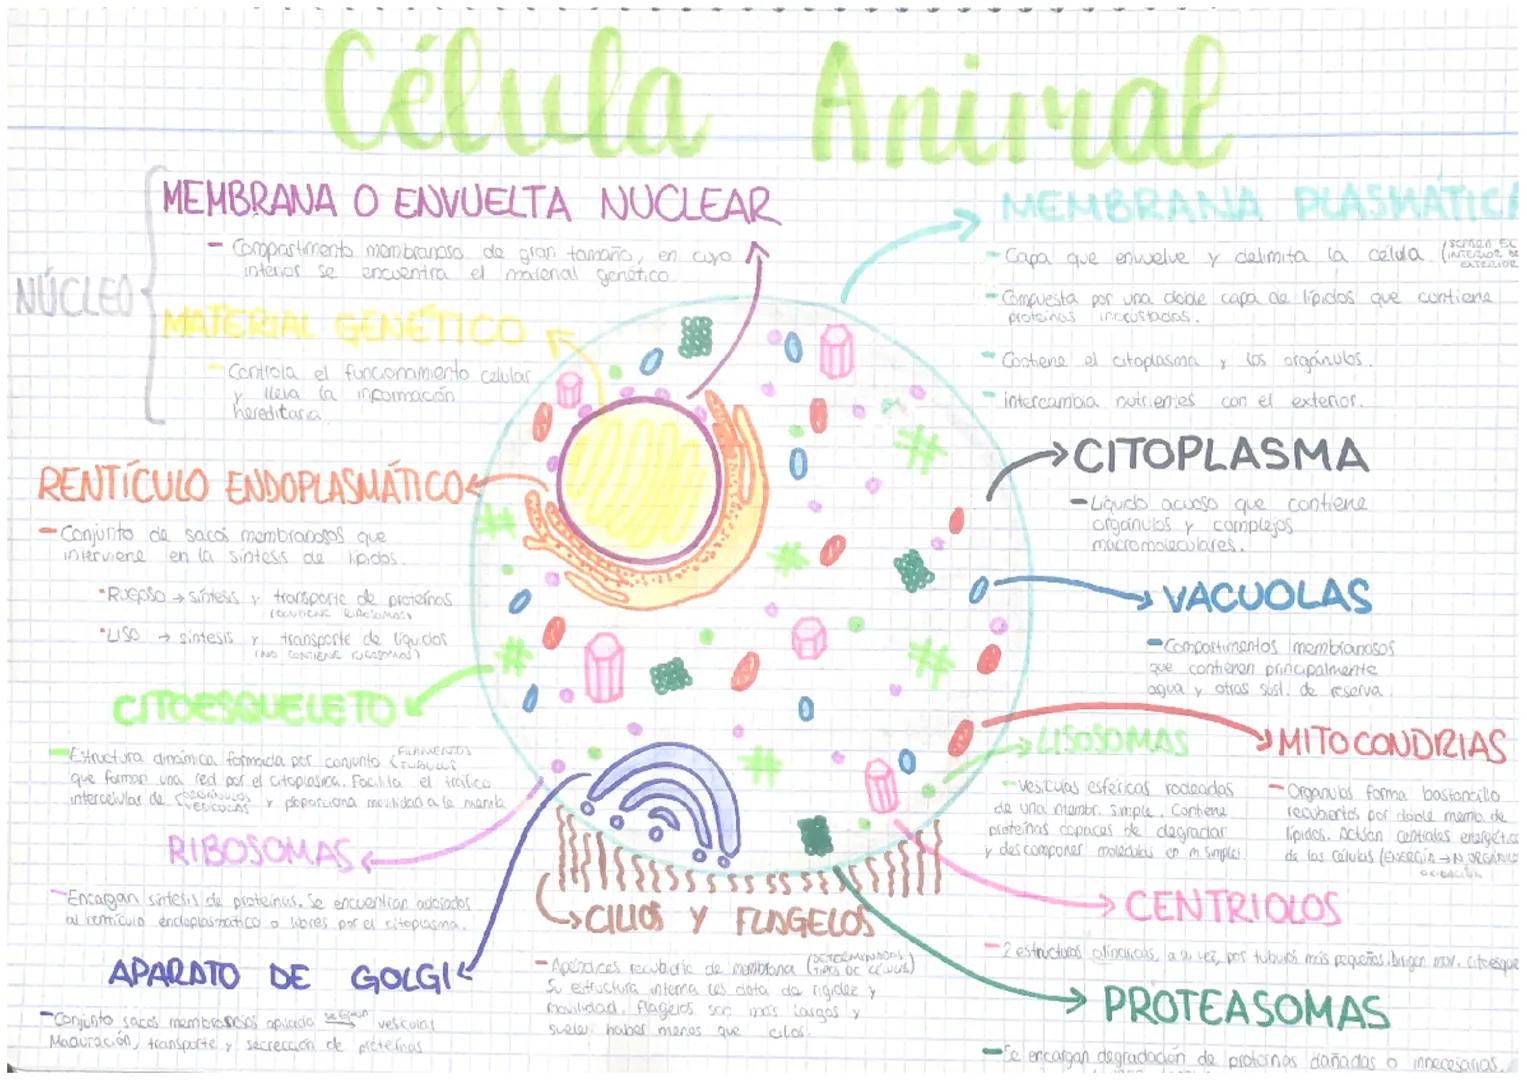 Célula Animal
NÚCLEO
MEMBRANA O ENVUELTA NUCLEAR
- Compartimento membranoso de gran tamaño, en cuyo
interior se encuentra el material genético.
MATERIAL GENÉTICO
- Controla el funcionamiento celular
y lleva la información
hereditaria.
RENTÍCULO ENDOPLASMÁTICO
- Conjunto de sacos membranosos que
interviene en la síntesis de lípidos.
*RUGOSO → síntesis y transporte de proteínas
(CONTIENE RIBOSOMAS)
*LISO → síntesis y transporte de líquidos
(NO CONTIENE
CITOESQUELETO
- Estructura dinámica formada por conjunto FILAMENTOS
TÚBULOS
que forman una red por el citoplasma. Facilita el tráfico
intercelular de ORGÁNULOS
VESÍCULAS y proporciona movilidad a la
RIBOSOMAS
- Encargan síntesis de proteínas. Se encuentran adosados
al rentículo endoplasmático o libres por el citoplasma.
APARATO DE GOLGI
- Conjunto sacos membranosos vesículas
Maduración, transporte y secreción de proteínas
CILIOS Y FLAGELOS
- Apéndices de membrana (DETERMINADOS
TIPOS DE CÉLULAS)
Su estructura interna les dota de rigidez y
movilidad. Flagelos son más largos y
suele haber menos que cilios.
MEMBRANA PLASMÁTICA
- Capa que envuelve y delimita la célula (SEPARA EL
INTERIOR DE
EXTERIOR
- Compuesta por una doble capa de lípidos que contiene
proteínas incrustadas.
- Contiene el citoplasma y los orgánulos.
- intercambia nutrientes con el exterior.
CITOPLASMA
- Líquido acuoso que contiene
orgánulos y complejos
macromoleculares.
VACUOLAS
- Compartimentos membranosos
que contienen principalmente
agua y otras sust. de reserva.
LISOSOMAS
- Vesículas esféricas rodeadas
de una membr. simple. Contiene
proteínas capaces de degradar
y descomponer moléculas en m. simples.
MITOCONDRIAS
- Orgánulos forma bastoncillo
recubiertos por doble memb. de
lípidos. Actúan centrales energéticas
de las células (ENERGÍA → N. ORGÁNICOS
OXIDACIÓN
CENTRIOLOS
- 2 estructuras cilíndricas, a su vez, por túbulos más pequeños. Dirigen mov. citoesque
PROTEASOMAS
- Se encargan degradación de proteínas dañadas o innecesarias.